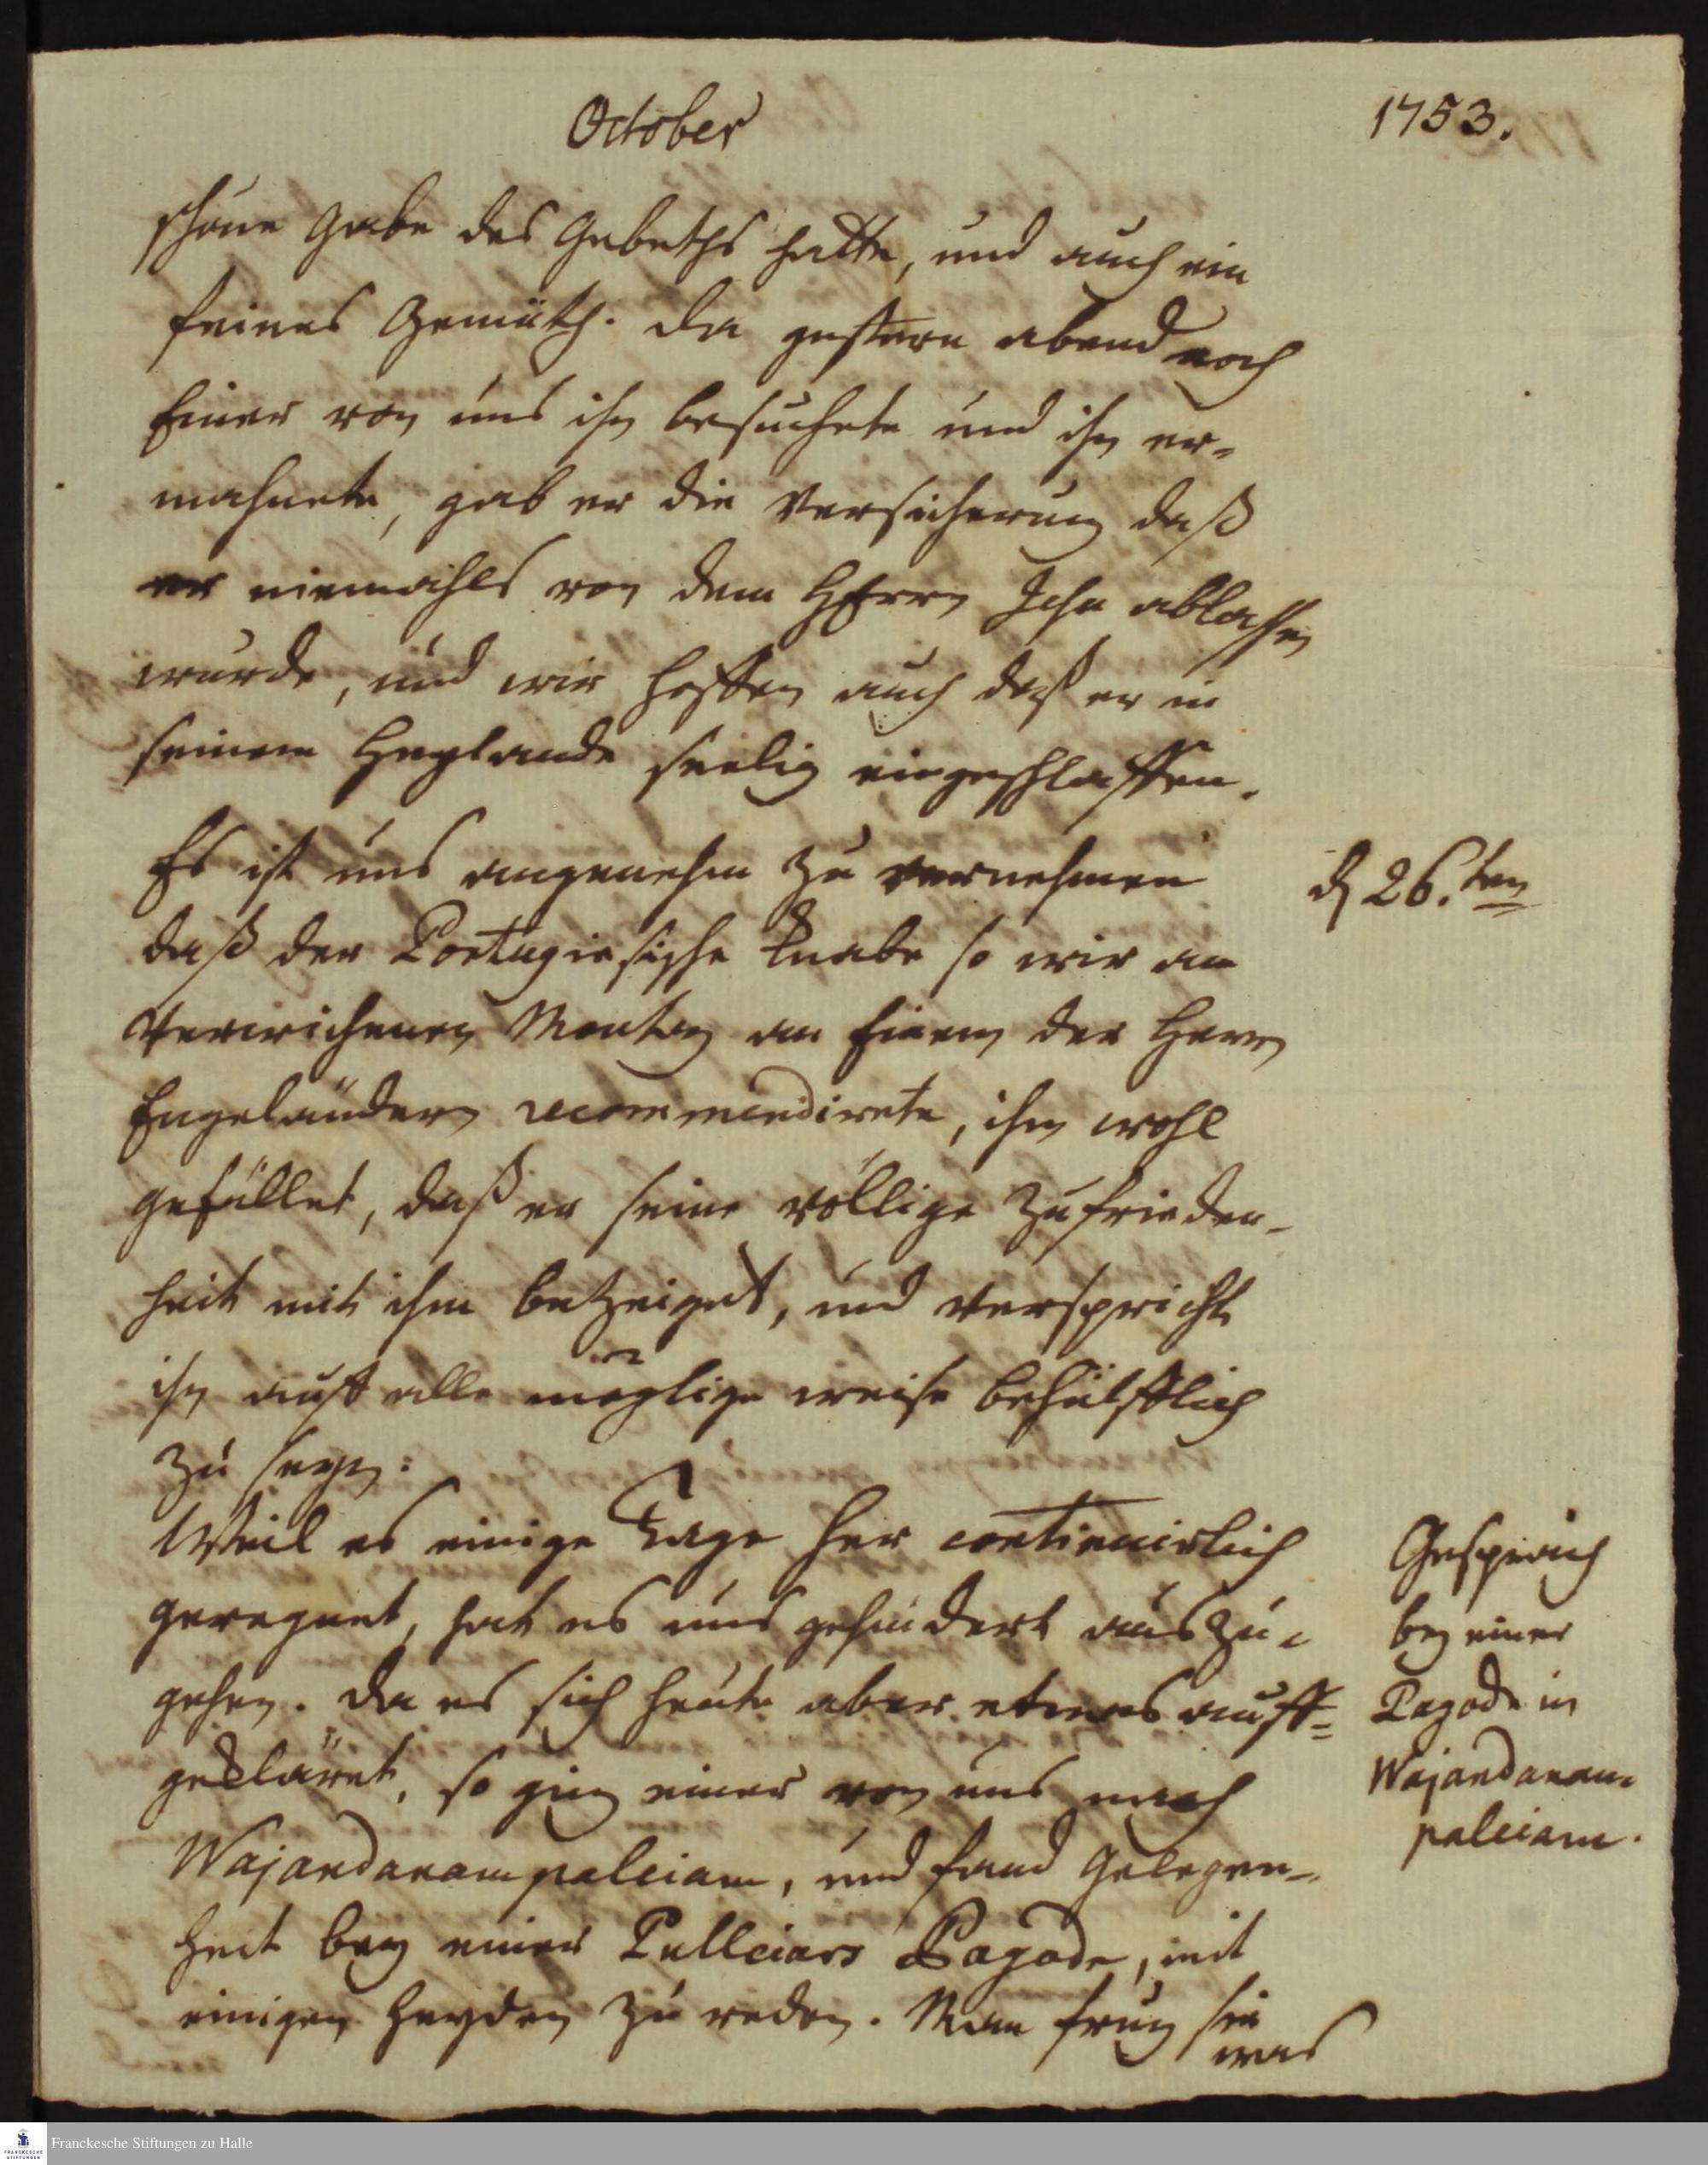 October
1753.
schöne Gabe des Gebeths hatte, und auch ein
feines Gemüth. Da gestern abend noch
Einer von uns ihn besuchete und ihn er-
mahnete, gab er die Versicherung daß
er niemahls von dem HErrn Jesu ablassen
wurde, und wir hoffen auch daß er in
seinem Heylande seelig eingeschlaffen.
Es ist uns angenehm zu vernehmen
d 26.ten
daß der Portugiesische Knabe so wir am
Verwichenen Montag an Einem der Herrn
Engeländern recommendirete, ihm wohl
gefället, daß er seine völlige Zufrieden-
heit mit ihm bezeiget, und verspricht
ihn auff alle möglige weise behülfflich
zu seyn.
Weil es einige Tage her continuirlich
geregnet, hat es uns gehindert auszu-
gehen. Da es sich heute aber etwas auff-
gekläret, so ging einer von uns nach
Wajandanampaleiam, und fand Gelegen-
heit bey einer Pulleiars Pagode, mit
einigen Heyden zu reden. Man frug sie
was
Gespräch
bey einer
Pagode in
Wajandanam-
paleiam.
Franckesche Stiftungen zu Halle
FRANCKESCHE
STIFTUNGEN